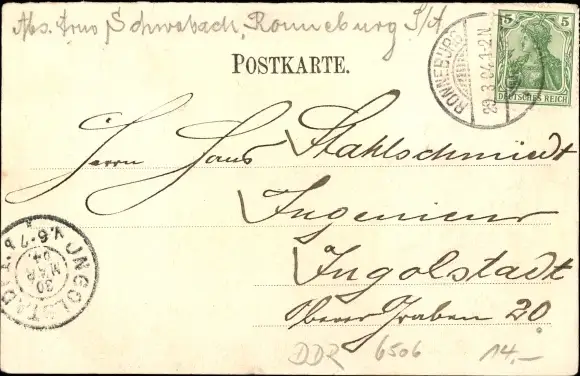 Abs. Arno Schwabach, Ronneburg S/A
POSTKARTE.
RONNEBURG
29.3.04.1-2N
5 5
DEUTSCHES REICH
Herrn Hans Stahlschmidt
Ingenieur
Ingolstadt
Oberer Graben 20
INGOLSTADT
30
MAR
04
DDR 6506 14.-